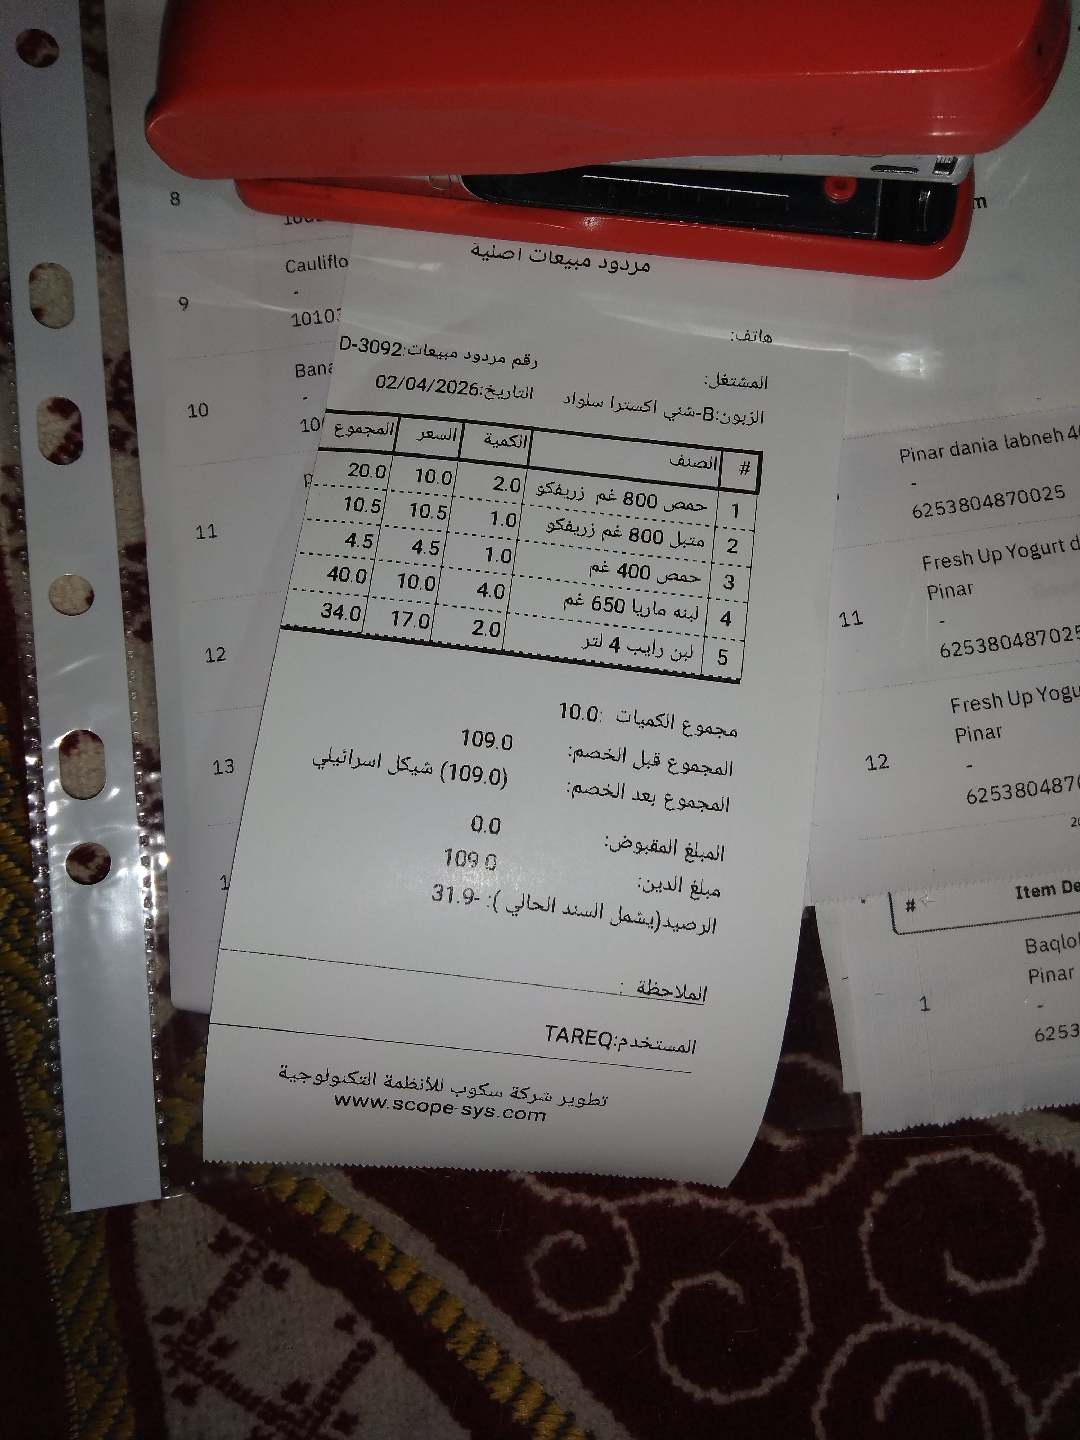 مردود مبيعات اصلية
هاتف:
رقم مردود مبيعات:D-3092
المشتغل:
التاريخ:02/04/2026
الزبون:B-شني اكسترا سلواد
# الصنف الكمية السعر المجموع
1 حمص 800 غم زريفكو 2.0 10.0 20.0
2 متبل 800 غم زريفكو 1.0 10.5 10.5
3 حمص 400 غم 1.0 4.5 4.5
4 لبنه ماريا 650 غم 4.0 10.0 40.0
5 لبن رايب 4 لتر 2.0 17.0 34.0
مجموع الكميات :10.0
المجموع قبل الخصم: 109.0
المجموع بعد الخصم: (109.0) شيكل اسرائيلي
المبلغ المقبوض: 0.0
مبلغ الدين: 109.0
الرصيد(يشمل السند الحالي ): -31.9
الملاحظة :
المستخدم:TAREQ
تطوير شركة سكوب للأنظمة التكنولوجية
www.scope-sys.com
8
9
-
10
-
11
12
13
Pinar dania labneh
-
6253804870025
11
Fresh Up Yogurt
Pinar
-
12
Fresh Up
Pinar
-
# Item
1
Pinar
-